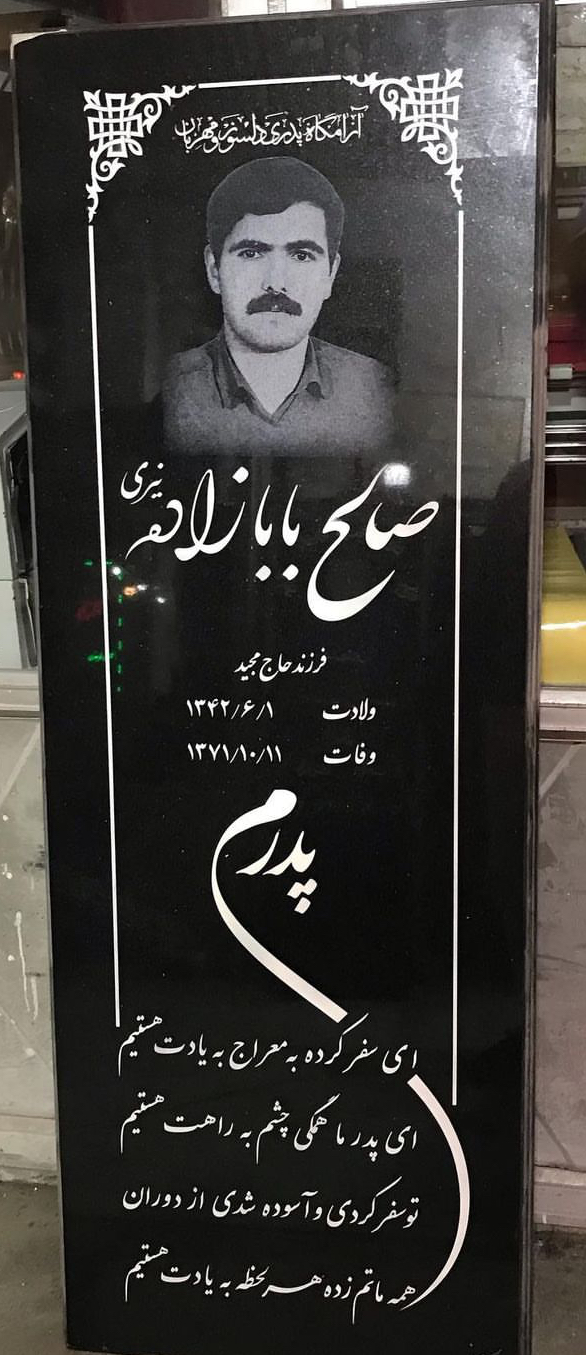 آرامگاه پدری دلسوز و مهربان
صالح بابازاده نیری
فرزند حاج مجید
ولادت ۱۳۴۲/۶/۱
وفات ۱۳۷۱/۱۰/۱۱
پدرم
ای سفر کرده به معراج به یادت هستیم
ای پدر ما همگی چشم به راهت هستیم
تو سفر کردی و آسوده شدی از دوران
همه ماتم زده هر لحظه به یادت هستیم